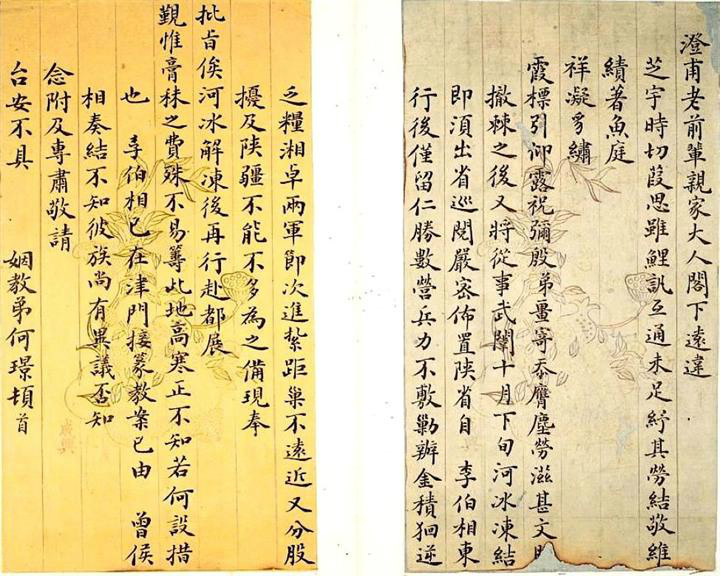 澄甫老前輩親家大人閣下遠違
芝宇時切葭思雖鯉訊互通未足紓其勞結敬維
績著魚庭
祥凝豸繡
霞標引仰露祝彌殷弟畺寄忝膺塵勞滋甚文闈
撤棘之後又將從事武闈十月下旬河冰凍結
即須出省巡閱嚴密佈置陝省自 李伯相東
行後僅留仁勝數營兵力不敷勦辦金積狪逆
乏糧湘卓兩軍即次進紮距巢不遠近又分股
擾及陝疆不能不多為之備現奉
批旨俟河冰解凍後再行赴都展
覲惟膏秣之費殊不易籌此地高寒正不知若何設措
也 李伯相已在津門接篆教案已由 曾侯
相奏結不知彼族尚有異議否知
念附及專肅敬請
台安不具 姻教弟何璟頓首
咸興